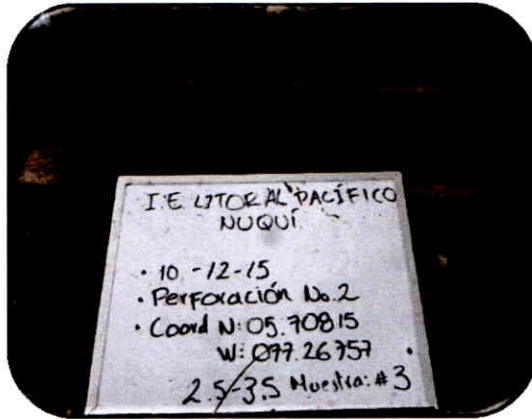 I.E. LITORAL PACÍFICO
NUQUÍ
• 10-12-15
• Perforación No.2
• Coord N: 05.70815
W: 077.26757
2.5-3.5 Muestra: #3